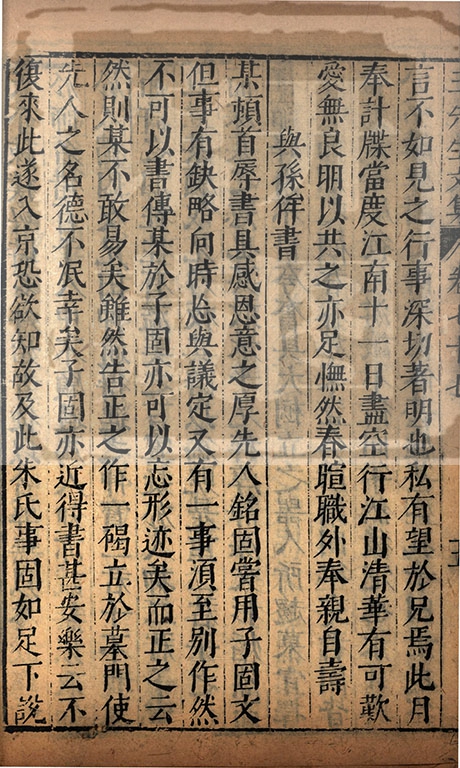 先生文集 卷七十七 五
言不如見之行事深切著明也私有望於兄焉此月
奉計牒當度江南十一日盡空行江山清華有可歎
愛無良明以共之亦足憮然春暄職外奉親自壽
與孫侔書
某頓首辱書具感恩意之厚先人銘固嘗用子固文
但事有缺略向時忘與議定又有一事湏至別作然
不可以書傳某於子固亦可以忘形迹矣而正之云
然則某不敢易矣雖然告正之作一碣立於墓門使
先人之名德不泯幸矣子固亦近得書甚安樂云不
復來此遂入京恐欲知故及此朱氏事固如足下說